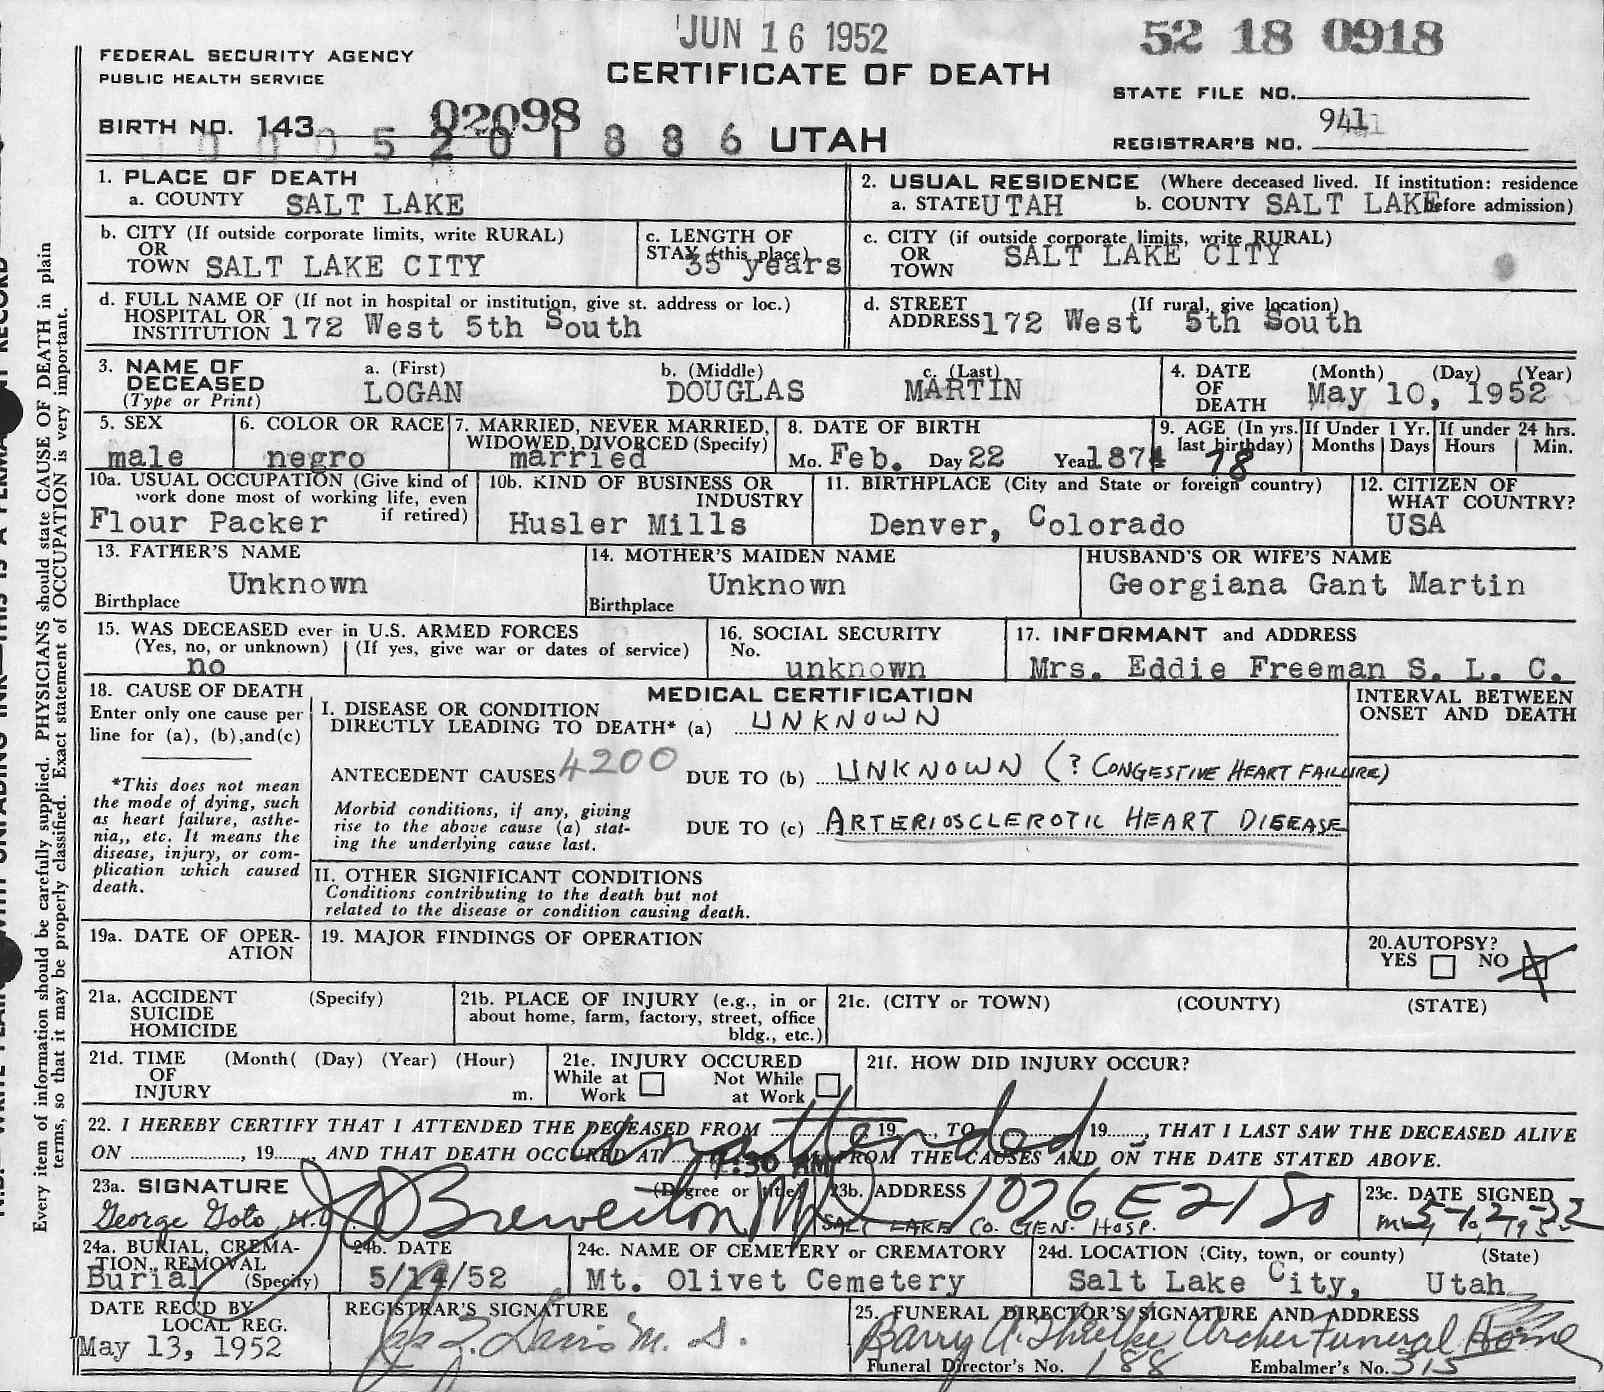 JUN 16 1952
52 18 0918
FEDERAL SECURITY AGENCY
PUBLIC HEALTH SERVICE
CERTIFICATE OF DEATH
STATE FILE NO.
BIRTH NO. 143
02098
0 0 0 0 5 2 0 1 8 8 6
UTAH
REGISTRAR'S NO. 941
1. PLACE OF DEATH
a. COUNTY SALT LAKE
2. USUAL RESIDENCE (Where deceased lived. If institution: residence before admission)
a. STATE UTAH b. COUNTY SALT LAKE
b. CITY (If outside corporate limits, write RURAL)
OR
TOWN SALT LAKE CITY
c. LENGTH OF
STAY (this place)
35 years
c. CITY (if outside corporate limits, write RURAL)
OR
TOWN
SALT LAKE CITY
d. FULL NAME OF (If not in hospital or institution, give st. address or loc.)
HOSPITAL OR
INSTITUTION 172 West 5th South
d. STREET (If rural, give location)
ADDRESS 172 West 5th South
3. NAME OF
DECEASED
(Type or Print)
a. (First) b. (Middle) c. (Last)
LOGAN DOUGLAS MARTIN
4. DATE
OF
DEATH
(Month) (Day) (Year)
May 10, 1952
5. SEX
male
6. COLOR OR RACE
negro
7. MARRIED, NEVER MARRIED,
WIDOWED, DIVORCED (Specify)
married
8. DATE OF BIRTH
Mo. Feb. Day 22 Year 1874
9. AGE (In yrs.
last birthday)
78
If Under 1 Yr.
Months Days
If under 24 hrs.
Hours Min.
10a. USUAL OCCUPATION (Give kind of
work done most of working life, even
if retired)
Flour Packer
10b. KIND OF BUSINESS OR
INDUSTRY
Husler Mills
11. BIRTHPLACE (City and State or foreign country)
Denver, Colorado
12. CITIZEN OF
WHAT COUNTRY?
USA
13. FATHER'S NAME
Unknown
Birthplace
14. MOTHER'S MAIDEN NAME
Unknown
Birthplace
HUSBAND'S OR WIFE'S NAME
Georgiana Gant Martin
15. WAS DECEASED ever in U.S. ARMED FORCES
(Yes, no, or unknown) (If yes, give war or dates of service)
no
16. SOCIAL SECURITY
No.
unknown
17. INFORMANT and ADDRESS
Mrs. Eddie Freeman S. L. C.
18. CAUSE OF DEATH
Enter only one cause per
line for (a), (b),and(c)
*This does not mean
the mode of dying, such
as heart failure, asthe-
nia,, etc. It means the
disease, injury, or com-
plication which caused
death.
MEDICAL CERTIFICATION
I. DISEASE OR CONDITION
DIRECTLY LEADING TO DEATH* (a) UNKNOWN
ANTECEDENT CAUSES 4200 DUE TO (b) UNKNOWN (? CONGESTIVE HEART FAILURE)
Morbid conditions, if any, giving
rise to the above cause (a) stat-
ing the underlying cause last.
DUE TO (c) ARTERIOSCLEROTIC HEART DISEASE
INTERVAL BETWEEN
ONSET AND DEATH
II. OTHER SIGNIFICANT CONDITIONS
Conditions contributing to the death but not
related to the disease or condition causing death.
19a. DATE OF OPER-
ATION
19. MAJOR FINDINGS OF OPERATION
20. AUTOPSY?
YES NO
21a. ACCIDENT (Specify)
SUICIDE
HOMICIDE
21b. PLACE OF INJURY (e.g., in or
about home, farm, factory, street, office
bldg., etc.)
21c. (CITY or TOWN) (COUNTY) (STATE)
21d. TIME (Month( (Day) (Year) (Hour)
OF
INJURY m.
21e. INJURY OCCURED
While at Work Not While at Work
21f. HOW DID INJURY OCCUR?
22. I HEREBY CERTIFY THAT I ATTENDED THE DECEASED FROM , 19 , TO 19 , THAT I LAST SAW THE DECEASED ALIVE
unattended
ON , 19 , AND THAT DEATH OCCURED AT 7:30 AM FROM THE CAUSES AND ON THE DATE STATED ABOVE.
23a. SIGNATURE (Degree or title)
George Goto M.D. Brewerton MD
23b. ADDRESS 1076 E 21 So
SALT LAKE CO. GEN. HOSP.
23c. DATE SIGNED
24a. BURIAL, CREMA-
TION, REMOVAL
(Specify)
Burial
24b. DATE
5/14/52
24c. NAME OF CEMETERY or CREMATORY
Mt. Olivet Cemetery
24d. LOCATION (City, town, or county) (State)
Salt Lake City, Utah
DATE REC'D BY
LOCAL REG.
May 13, 1952
REGISTRAR'S SIGNATURE
25. FUNERAL DIRECTOR'S SIGNATURE AND ADDRESS
Archer Funeral Home
Funeral Director's No. 188 Embalmer's No. 315
Every item of information should be carefully supplied. PHYSICIANS should state CAUSE OF DEATH in plain
terms, so that it may be properly classified. Exact statement of OCCUPATION is very important.